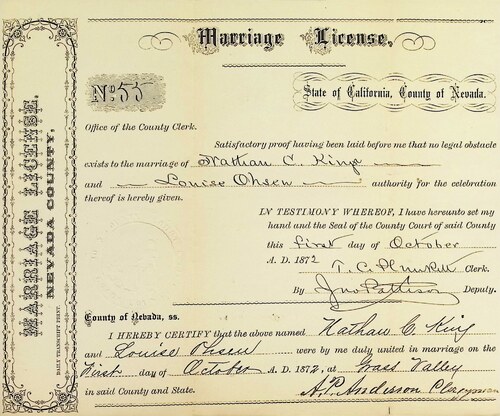 Marriage License,
No. 55
State of California, County of Nevada.
Office of the County Clerk.
Satisfactory proof having been laid before me that no legal obstacle
exists to the marriage of Nathan C. King
and Louise Ohsen authority for the celebration
thereof is hereby given.
IN TESTIMONY WHEREOF, I have hereunto set my
hand and the Seal of the County Court of said County
this first day of October
A. D. 1872
T. C. Plunkett Clerk.
By Jno Pattison Deputy.
County of Nevada, ss.
I HEREBY CERTIFY that the above named Nathan C. King
and Louise Ohsen were by me duly united in marriage on the
First day of October A. D. 1872, at Grass Valley
in said County and State. A. P. Anderson Clergyman
MARRIAGE LICENSE.
NEVADA COUNTY.
DAILY TRANSCRIPT PRINT.